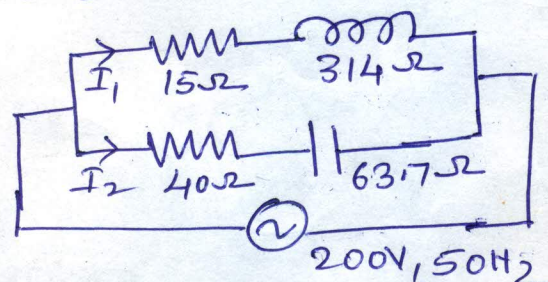 I₁ 15Ω 314Ω
I₂ 40Ω 63.7Ω
200V, 50Hz